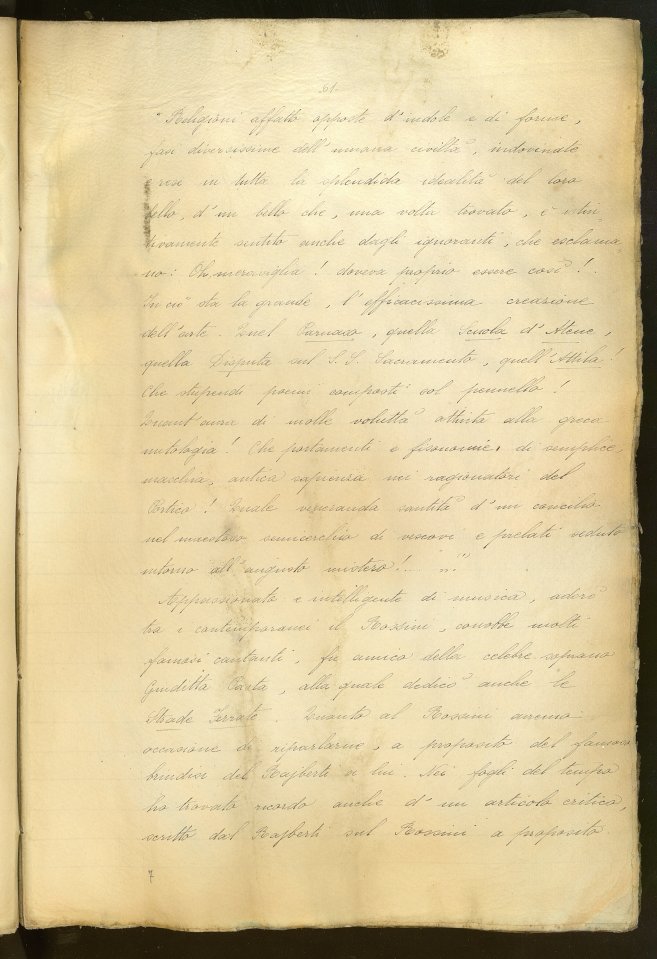 61.
" Religioni affatto opposte d'indole e di forme,
fasi diversissime dell'umana civiltà, indovinate
rese in tutta la splendida idealità del loro
bello, d'un bello che, una volta trovato, è istin-
tivamente sentito anche dagli ignoranti, che esclama-
no: Oh meraviglia! doveva proprio essere così!.
In ciò sta la grande, l'efficacissima creazione
dell'arte. Quel Parnaso, quella Scuola d'Atene,
quella Disputa sul S.S. Sacramento, quell'Attila!
Che stupendi poemi composti col pennello!
Quant'aura di molle voluttà attinta alla greca
mitologia! Che portamenti e fisonomie, di semplice,
maschia, antica sapienza nei ragionatori del
Portico! Quale veneranda santità d'un concilio
nel maestoso semicerchio di vescovi e prelati seduto
intorno all'augusto mistero!.. ..."
Appassionato e intelligente di musica, adorò
tra i contemporanei il Rossini, conobbe molti
famosi cantanti, fu amico della celebre soprano
Giuditta Pasta, alla quale dedicò anche le
Strade Ferrate. Quanto al Rossini avremo
occasione di riparlarne, a proposito del famoso
brindisi del Rajberti a lui. Nei fogli del tempo
ho trovato ricordo anche d'un articolo critico,
scritto dal Rajberti sul Rossini a proposito
7